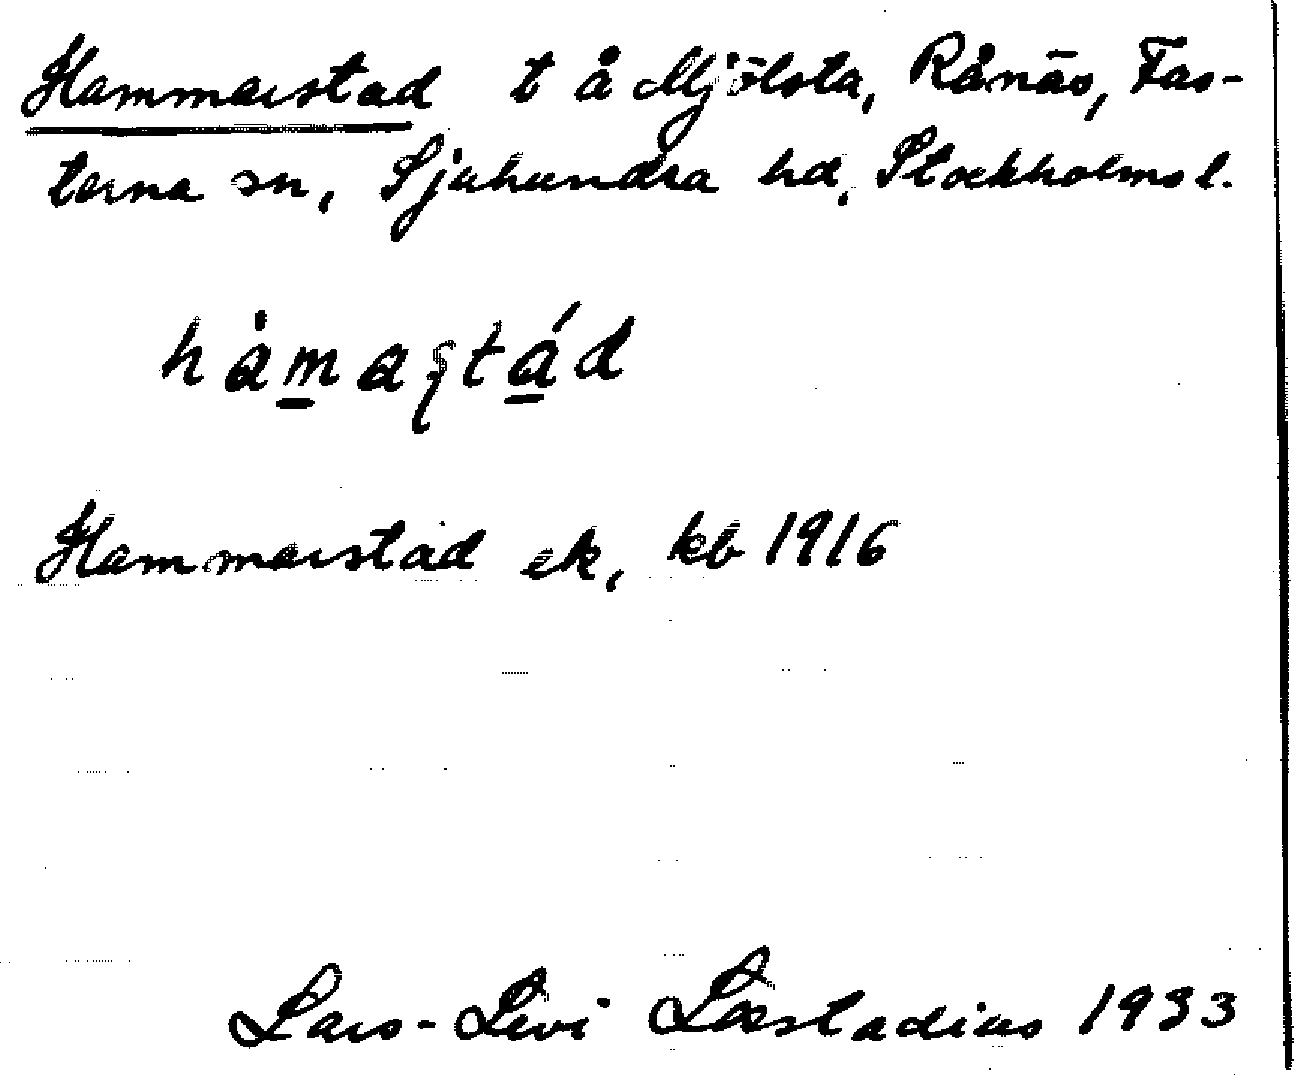 Hammarstad t å Mjölsta, Rånäs, Fas-
terna sn, Sjuhundra hd, Stockholms l.
hȧmaʂtád
Hammarstad ek, kb 1916
Lars-Levi Læstadius 1933